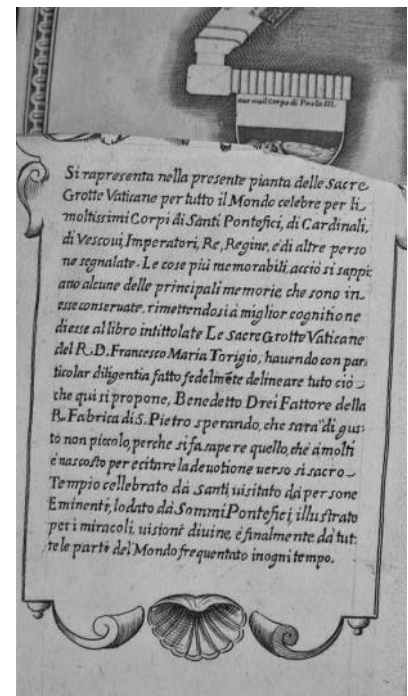 oue era il Corpo di Paolo III.
Si rapresenta nella presente pianta delle Sacre
Grotte Vaticane per tutto il Mondo celebre per li
moltissimi Corpi di Santi Pontefici, di Cardinali,
di Vescoui, Imperatori, Re, Regine, e di altre perso
ne segnalate. Le cose più memorabili, acciò si sappi
ano alcune delle principali memorie, che sono in
esse conseruate, rimettendosi à miglior cognitione
di esse al libro intittolate Le Sacre Grotte Vaticane
del R. D. Francesco Maria Torigio, hauendo con par:
ticolar diligentia fatto fedelmẽte delineare tuto ciò
che qui si propone, Benedetto Drei Fattore della
R. Fabrica di S. Pietro sperando, che sarà di gus:
to non piccolo, perche si fa sapere quello, che à molti
è nascosto per ecitare la deuotione uerso si sacro
Tempio cellebrato dà Santi, uisitato dà persone
Eminenti, lodato dà Sommi Pontefici, illustrato
per i miracoli, uisioni diuine, è finalmente dà tut:
te le parte del Mondo frequentato in ogni tempo.